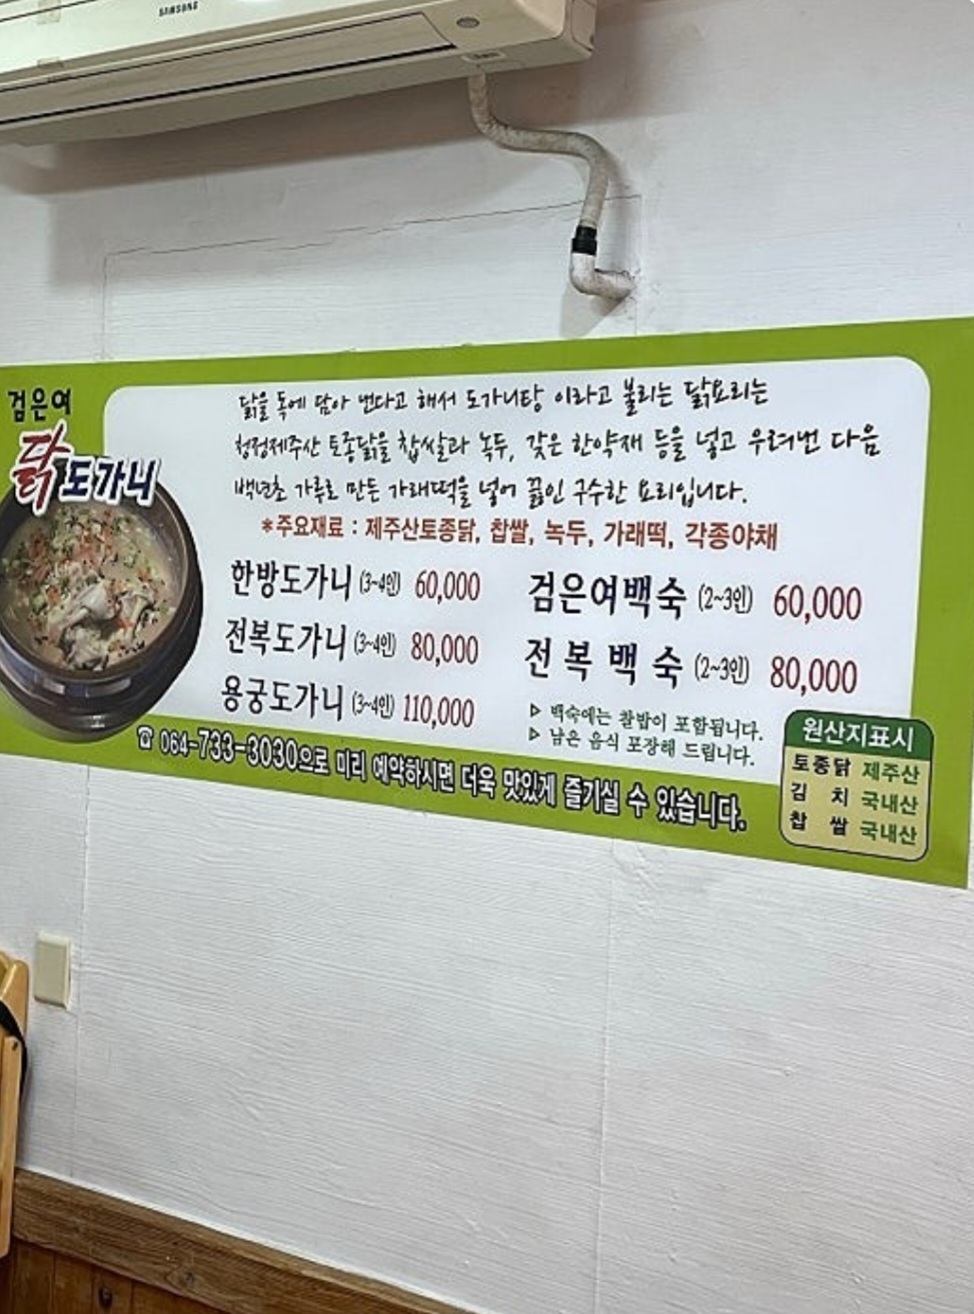 SAMSUNG
검은여
닭도가니
닭을 독에 담아 낸다고 해서 도가니탕 이라고 불리는 닭요리는
청정제주산 토종닭을 찹쌀과 녹두, 갖은 한약재 등을 넣고 우려낸 다음
백년초 가루로 만든 가래떡을 넣어 끓인 구수한 요리입니다.
*주요재료 : 제주산토종닭, 찹쌀, 녹두, 가래떡, 각종야채
한방도가니 (3~4인) 60,000
전복도가니 (3~4인) 80,000
용궁도가니 (3~4인) 110,000
검은여백숙 (2~3인) 60,000
전복백숙 (2~3인) 80,000
▷ 백숙에는 찰밥이 포함됩니다.
▷ 남은 음식 포장해 드립니다.
☎ 064-733-3030으로 미리 예약하시면 더욱 맛있게 즐기실 수 있습니다.
원산지표시
토종닭 제주산
김 치 국내산
찹 쌀 국내산